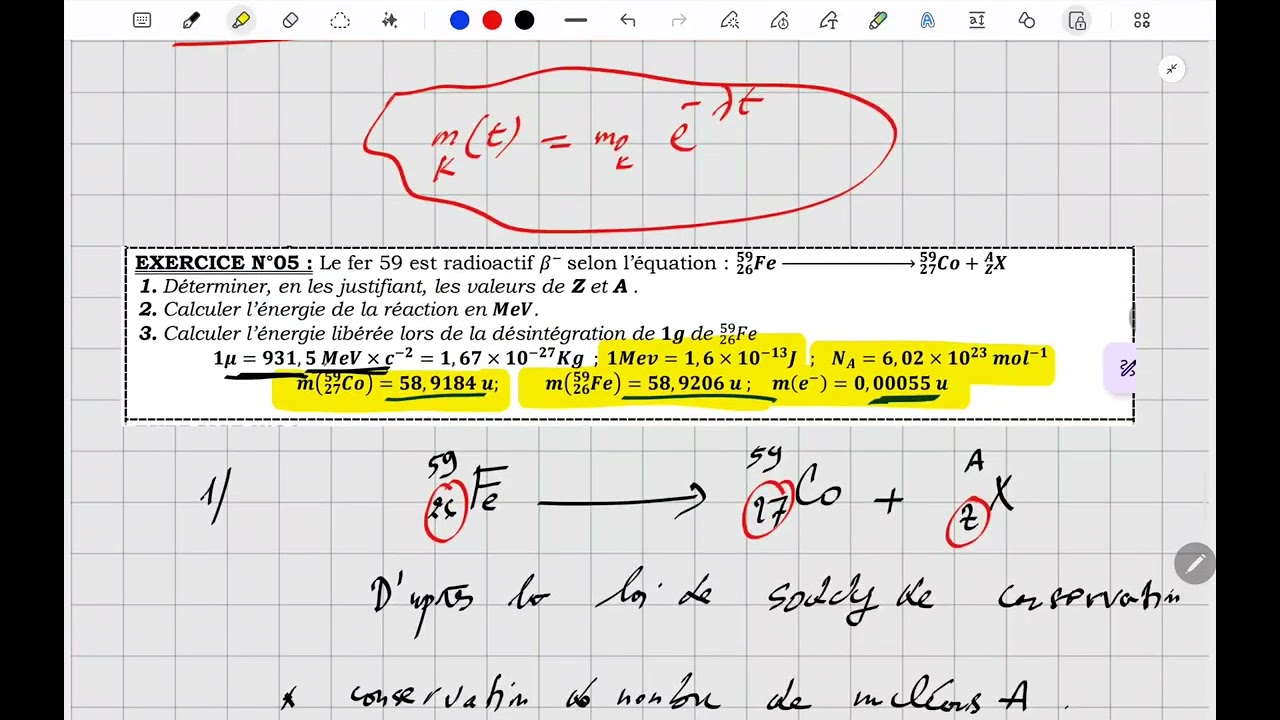 m_K(t) = m_{0K} e^{-λt}
EXERCICE N°05 : Le fer 59 est radioactif β⁻ selon l'équation : ⁵⁹₂₆Fe ⟶ ⁵⁹₂₇Co + ᴬ_ZX
1. Déterminer, en les justifiant, les valeurs de Z et A .
2. Calculer l'énergie de la réaction en MeV.
3. Calculer l'énergie libérée lors de la désintégration de 1g de ⁵⁹₂₆Fe
1μ = 931,5 MeV × c⁻² = 1,67 × 10⁻²⁷Kg ; 1Mev = 1,6 × 10⁻¹³J ; N_A = 6,02 × 10²³ mol⁻¹
m(⁵⁹₂₇Co) = 58,9184 u; m(⁵⁹₂₆Fe) = 58,9206 u ; m(e⁻) = 0,00055 u
1/ ⁵⁹₂₆Fe ⟶ ⁵⁹₂₇Co + ᴬ_ZX
D'après la loi de soddy de conservation
* conservation de nombre de nucléons A .